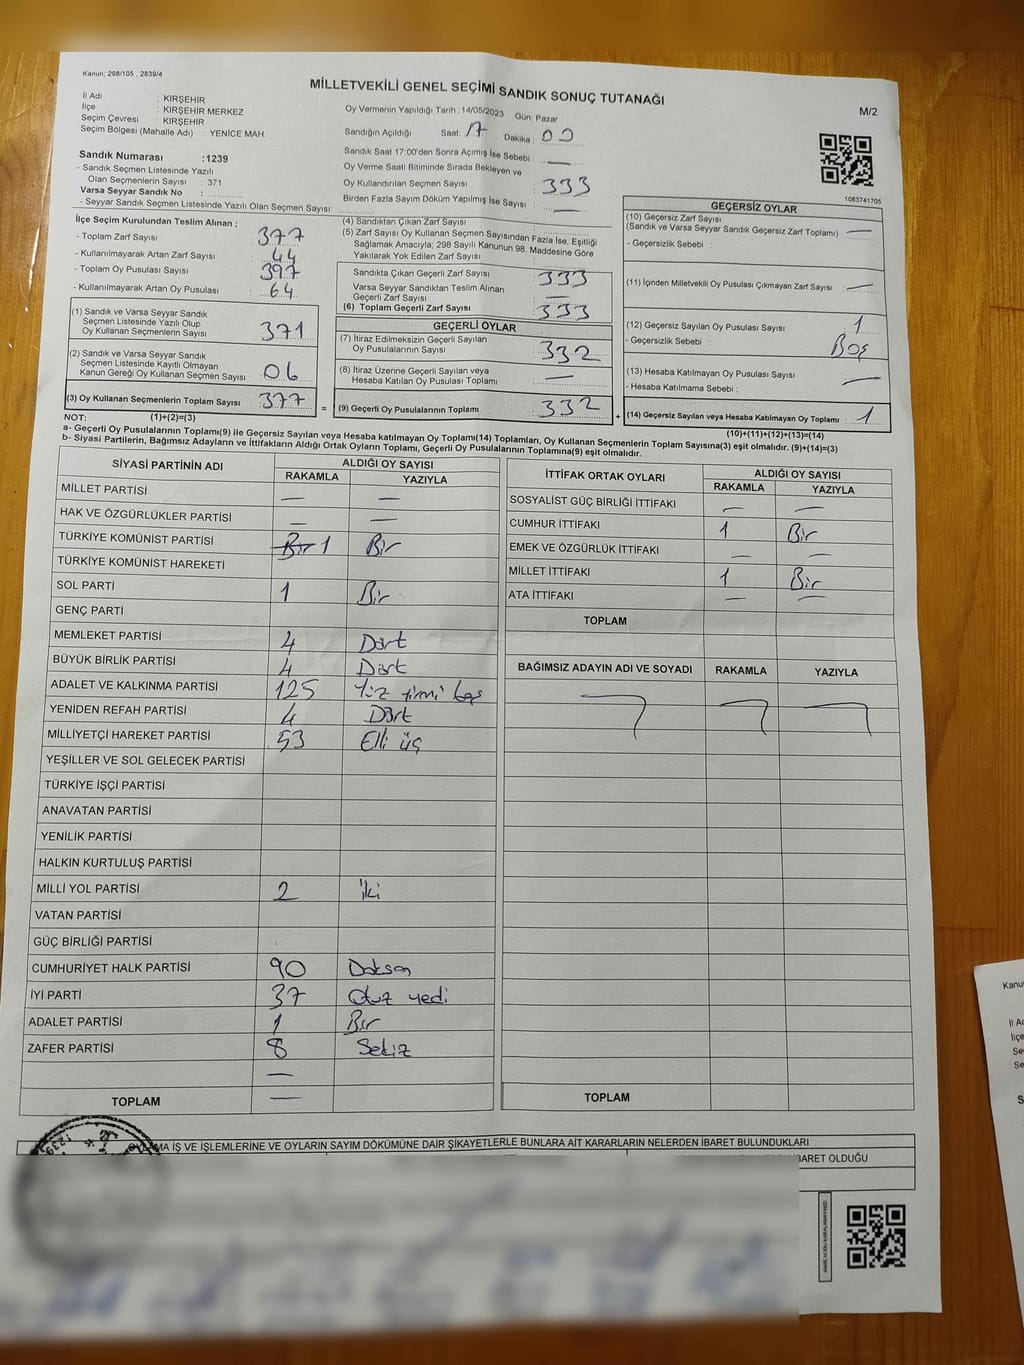 Kanun: 298/105 , 2839/4
MİLLETVEKİLİ GENEL SEÇİMİ SANDIK SONUÇ TUTANAĞI
M/2
İl Adı : KIRŞEHİR
İlçe : KIRŞEHİR MERKEZ
Seçim Çevresi : KIRŞEHİR
Seçim Bölgesi (Mahalle Adı) : YENİCE MAH.
Oy Vermenin Yapıldığı Tarih : 14/05/2023 Gün: Pazar
Sandığın Açıldığı Saat: 17 Dakika : 00
Sandık Saat 17:00'den Sonra Açımış İse Sebebi : —
Oy Verme Saati Bitiminde Sırada Bekleyen ve
Oy Kullandırılan Seçmen Sayısı 333
Birden Fazla Sayım Döküm Yapılmış İse Sayısı : —
Sandık Numarası :1239
- Sandık Seçmen Listesinde Yazılı
Olan Seçmenlerin Sayısı : 371
Varsa Seyyar Sandık No :
- Seyyar Sandık Seçmen Listesinde Yazılı Olan Seçmen Sayısı:
1083741705
İlçe Seçim Kurulundan Teslim Alınan ;
- Toplam Zarf Sayısı : 377
- Kullanılmayarak Artan Zarf Sayısı : 44
- Toplam Oy Pusulası Sayısı : 397
- Kullanılmayarak Artan Oy Pusulası : 64
(1) Sandık ve Varsa Seyyar Sandık
Seçmen Listesinde Yazılı Olup
Oy Kullanan Seçmenlerin Sayısı : 371
(2) Sandık ve Varsa Seyyar Sandık
Seçmen Listesinde Kayıtlı Olmayan
Kanun Gereği Oy Kullanan Seçmen Sayısı : 06
(3) Oy Kullanan Seçmenlerin Toplam Sayısı : 377
(1)+(2)=(3)
(4) Sandıktan Çıkan Zarf Sayısı :
(5) Zarf Sayısı Oy Kullanan Seçmen Sayısından Fazla İse, Eşitliği
Sağlamak Amacıyla; 298 Sayılı Kanunun 98. Maddesine Göre
Yakılarak Yok Edilen Zarf Sayısı :
Sandıkta Çıkan Geçerli Zarf Sayısı : 333
Varsa Seyyar Sandıktan Teslim Alınan
Geçerli Zarf Sayısı : —
(6) Toplam Geçerli Zarf Sayısı : 333
GEÇERLİ OYLAR
(7) İtiraz Edilmeksizin Geçerli Sayılan
Oy Pusulalarının Sayısı : 332
(8) İtiraz Üzerine Geçerli Sayılan veya
Hesaba Katılan Oy Pusulası Toplamı : —
= (9) Geçerli Oy Pusulalarının Toplamı : 332
GEÇERSİZ OYLAR
(10) Geçersiz Zarf Sayısı
(Sandık ve Varsa Seyyar Sandık Geçersiz Zarf Toplamı) : —
- Geçersizlik Sebebi :
(11) İçinden Milletvekili Oy Pusulası Çıkmayan Zarf Sayısı : —
(12) Geçersiz Sayılan Oy Pusulası Sayısı : 1
- Geçersizlik Sebebi : Boş
(13) Hesaba Katılmayan Oy Pusulası Sayısı : —
- Hesaba Katılmama Sebebi :
+ (14) Geçersiz Sayılan veya Hesaba Katılmayan Oy Toplamı : 1
(10)+(11)+(12)+(13)=(14)
NOT:
a- Geçerli Oy Pusulaları Toplamı(9) ile Geçersiz Sayılan veya Hesaba katılmayan Oy Toplamı(14) Toplamları, Oy Kullanan Seçmenlerin Toplam Sayısına(3) eşit olmalıdır. (9)+(14)=(3)
b- Siyasi Partilerin, Bağımsız Adayların ve İttifakların Aldığı Ortak Oyların Toplamı, Geçerli Oy Pusulalarının Toplamına(9) eşit olmalıdır.
SİYASİ PARTİNİN ADI ALDIĞI OY SAYISI
RAKAMLA YAZIYLA
MİLLET PARTİSİ — —
HAK VE ÖZGÜRLÜKLER PARTİSİ — —
TÜRKİYE KOMÜNİST PARTİSİ Bir 1 Bir
TÜRKİYE KOMÜNİST HAREKETİ
SOL PARTİ 1 Bir
GENÇ PARTİ
MEMLEKET PARTİSİ 4 Dört
BÜYÜK BİRLİK PARTİSİ 4 Dört
ADALET VE KALKINMA PARTİSİ 125 Yüz yirmi beş
YENİDEN REFAH PARTİSİ 4 Dört
MİLLİYETÇİ HAREKET PARTİSİ 53 Elli üç
YEŞİLLER VE SOL GELECEK PARTİSİ
TÜRKİYE İŞÇİ PARTİSİ
ANAVATAN PARTİSİ
YENİLİK PARTİSİ
HALKIN KURTULUŞ PARTİSİ
MİLLİ YOL PARTİSİ 2 İki
VATAN PARTİSİ
GÜÇ BİRLİĞİ PARTİSİ
CUMHURİYET HALK PARTİSİ 90 Doksan
İYİ PARTİ 37 Otuz yedi
ADALET PARTİSİ 1 Bir
ZAFER PARTİSİ 8 Sekiz
—
TOPLAM —
İTTİFAK ORTAK OYLARI ALDIĞI OY SAYISI
RAKAMLA YAZIYLA
SOSYALİST GÜÇ BİRLİĞİ İTTİFAKI — —
CUMHUR İTTİFAKI 1 Bir
EMEK VE ÖZGÜRLÜK İTTİFAKI — —
MİLLET İTTİFAKI 1 Bir
ATA İTTİFAKI — —
TOPLAM
BAĞIMSIZ ADAYIN ADI VE SOYADI RAKAMLA YAZIYLA
TOPLAM
AMA İŞ VE İŞLEMLERİNE VE OYLARIN SAYIM DÖKÜMÜNE DAİR ŞİKAYETLERLE BUNLARA AİT KARARLARIN NELERDEN İBARET BULUNDUKLARI
İBARET OLDUĞU
1239
Kanu
İl A
İlçe
Se
Se
S